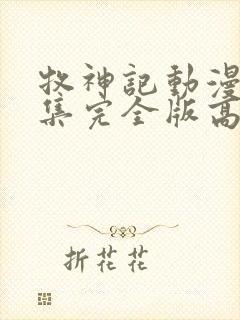 牧神記動漫
集完全版高
折花花